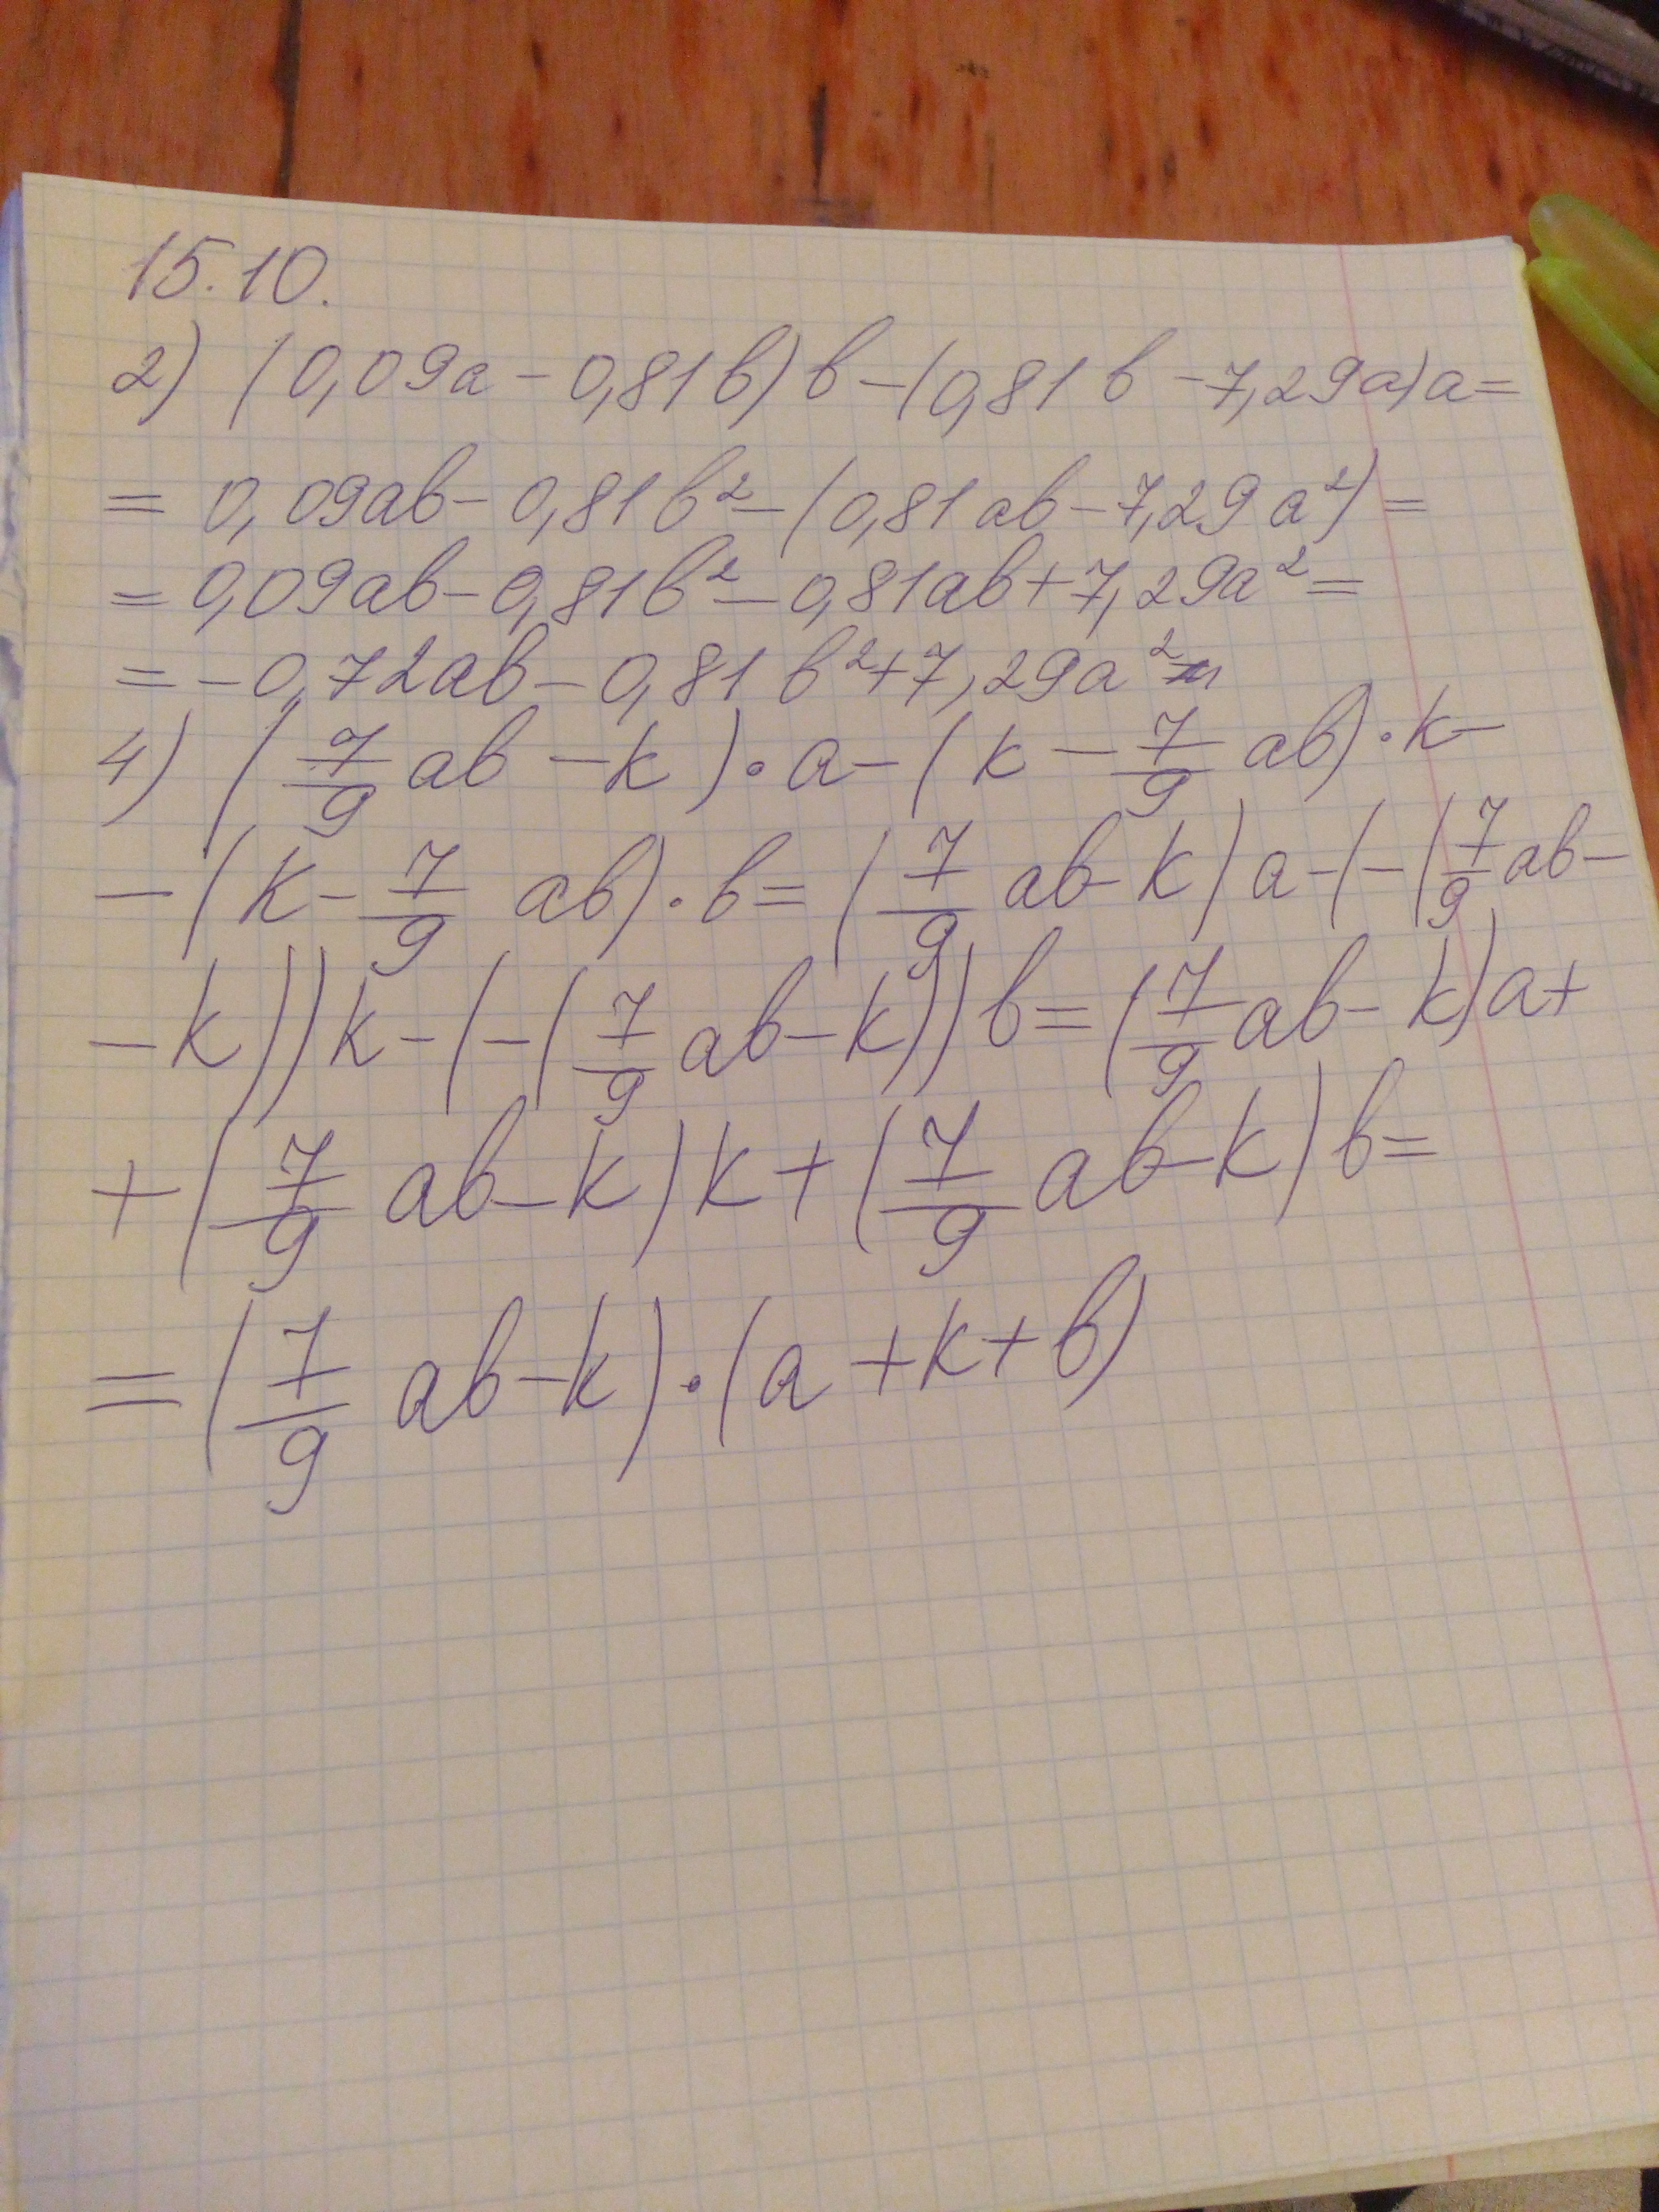 15.10.
2) (0,09a - 0,81b)b - (0,81b - 7,29a)a =
= 0,09ab - 0,81b² - (0,81ab - 7,29a²) =
= 0,09ab - 0,81b² - 0,81ab + 7,29a² =
= -0,72ab - 0,81b² + 7,29a²
4) (7/9 ab - k)·a - (k - 7/9 ab)·k -
- (k - 7/9 ab)·b = (7/9 ab - k)a - (-(7/9 ab -
- k))k - (-(7/9 ab - k))b = (7/9 ab - k)a +
+ (7/9 ab - k)k + (7/9 ab - k)b =
= (7/9 ab - k)·(a + k + b)